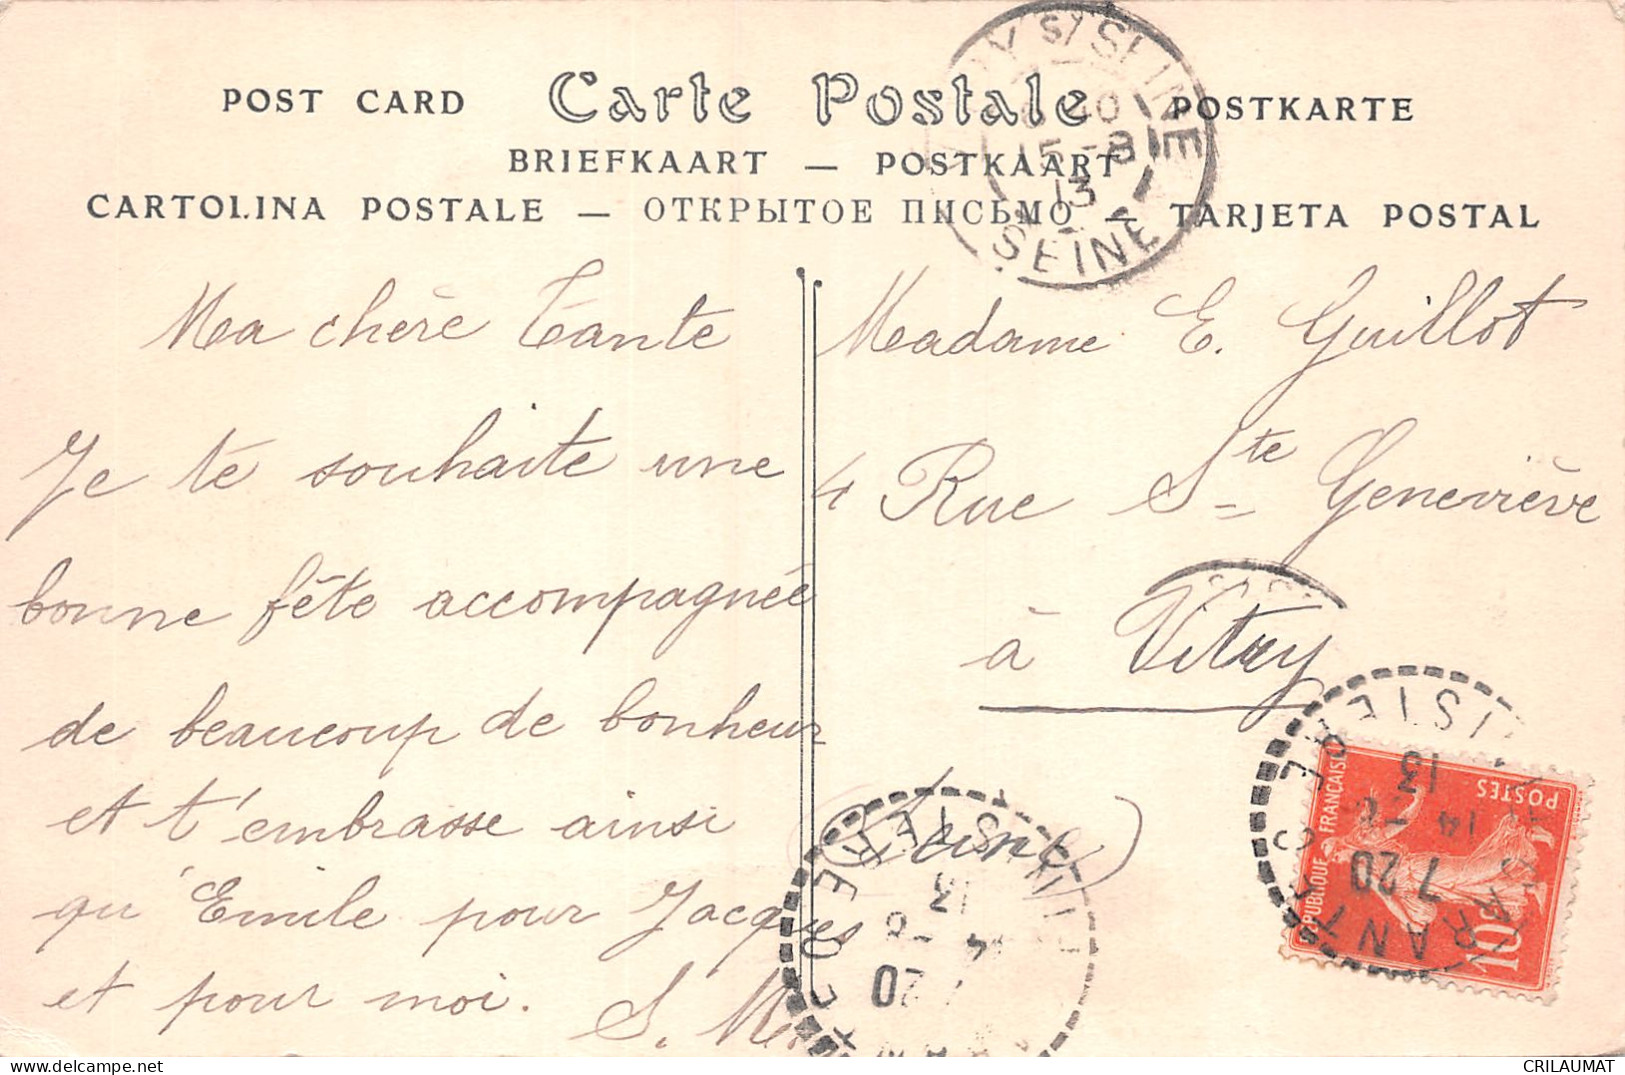 POST CARD Carte Postale POSTKARTE
BRIEFKAART — POSTKAART
CARTOLINA POSTALE — ОТКРЫТОЕ ПИСЬМО — TARJETA POSTAL
Y S/ SEINE
40
15-8
13
SEINE
Ma chère Tante
Je te souhaite une
bonne fête accompagnée
de beaucoup de bonheur
et t'embrasse ainsi
qu'Emile pour Jacques
et pour moi.
S. M.
Madame E. Guillot
4 Rue Ste Geneviève
à Vitry
(Seine)
7 20
14-8
13
RÉPUBLIQUE FRANÇAISE
POSTES
10c
20
13
CRILAUMAT